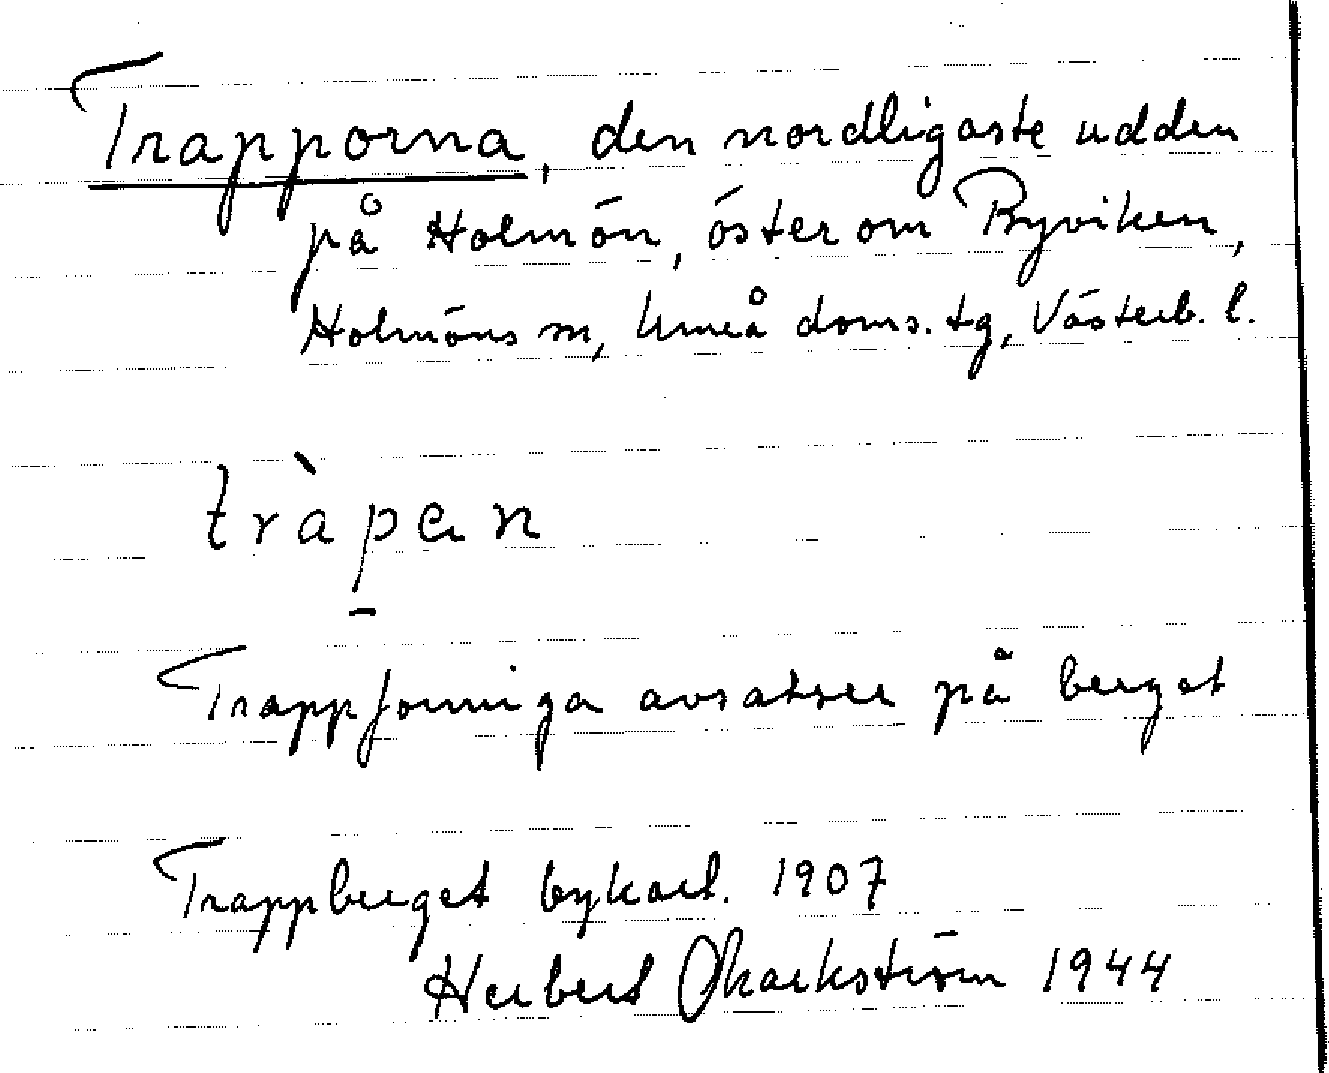 Trapporna, den nordligaste udden
på Holmön, öster om Byviken,
Holmöns sn, Umeå doms. tg, Västerb. l.
tràpan
Trappformiga avsatser på berget
Trappberget bykart. 1907
Herbert 1944